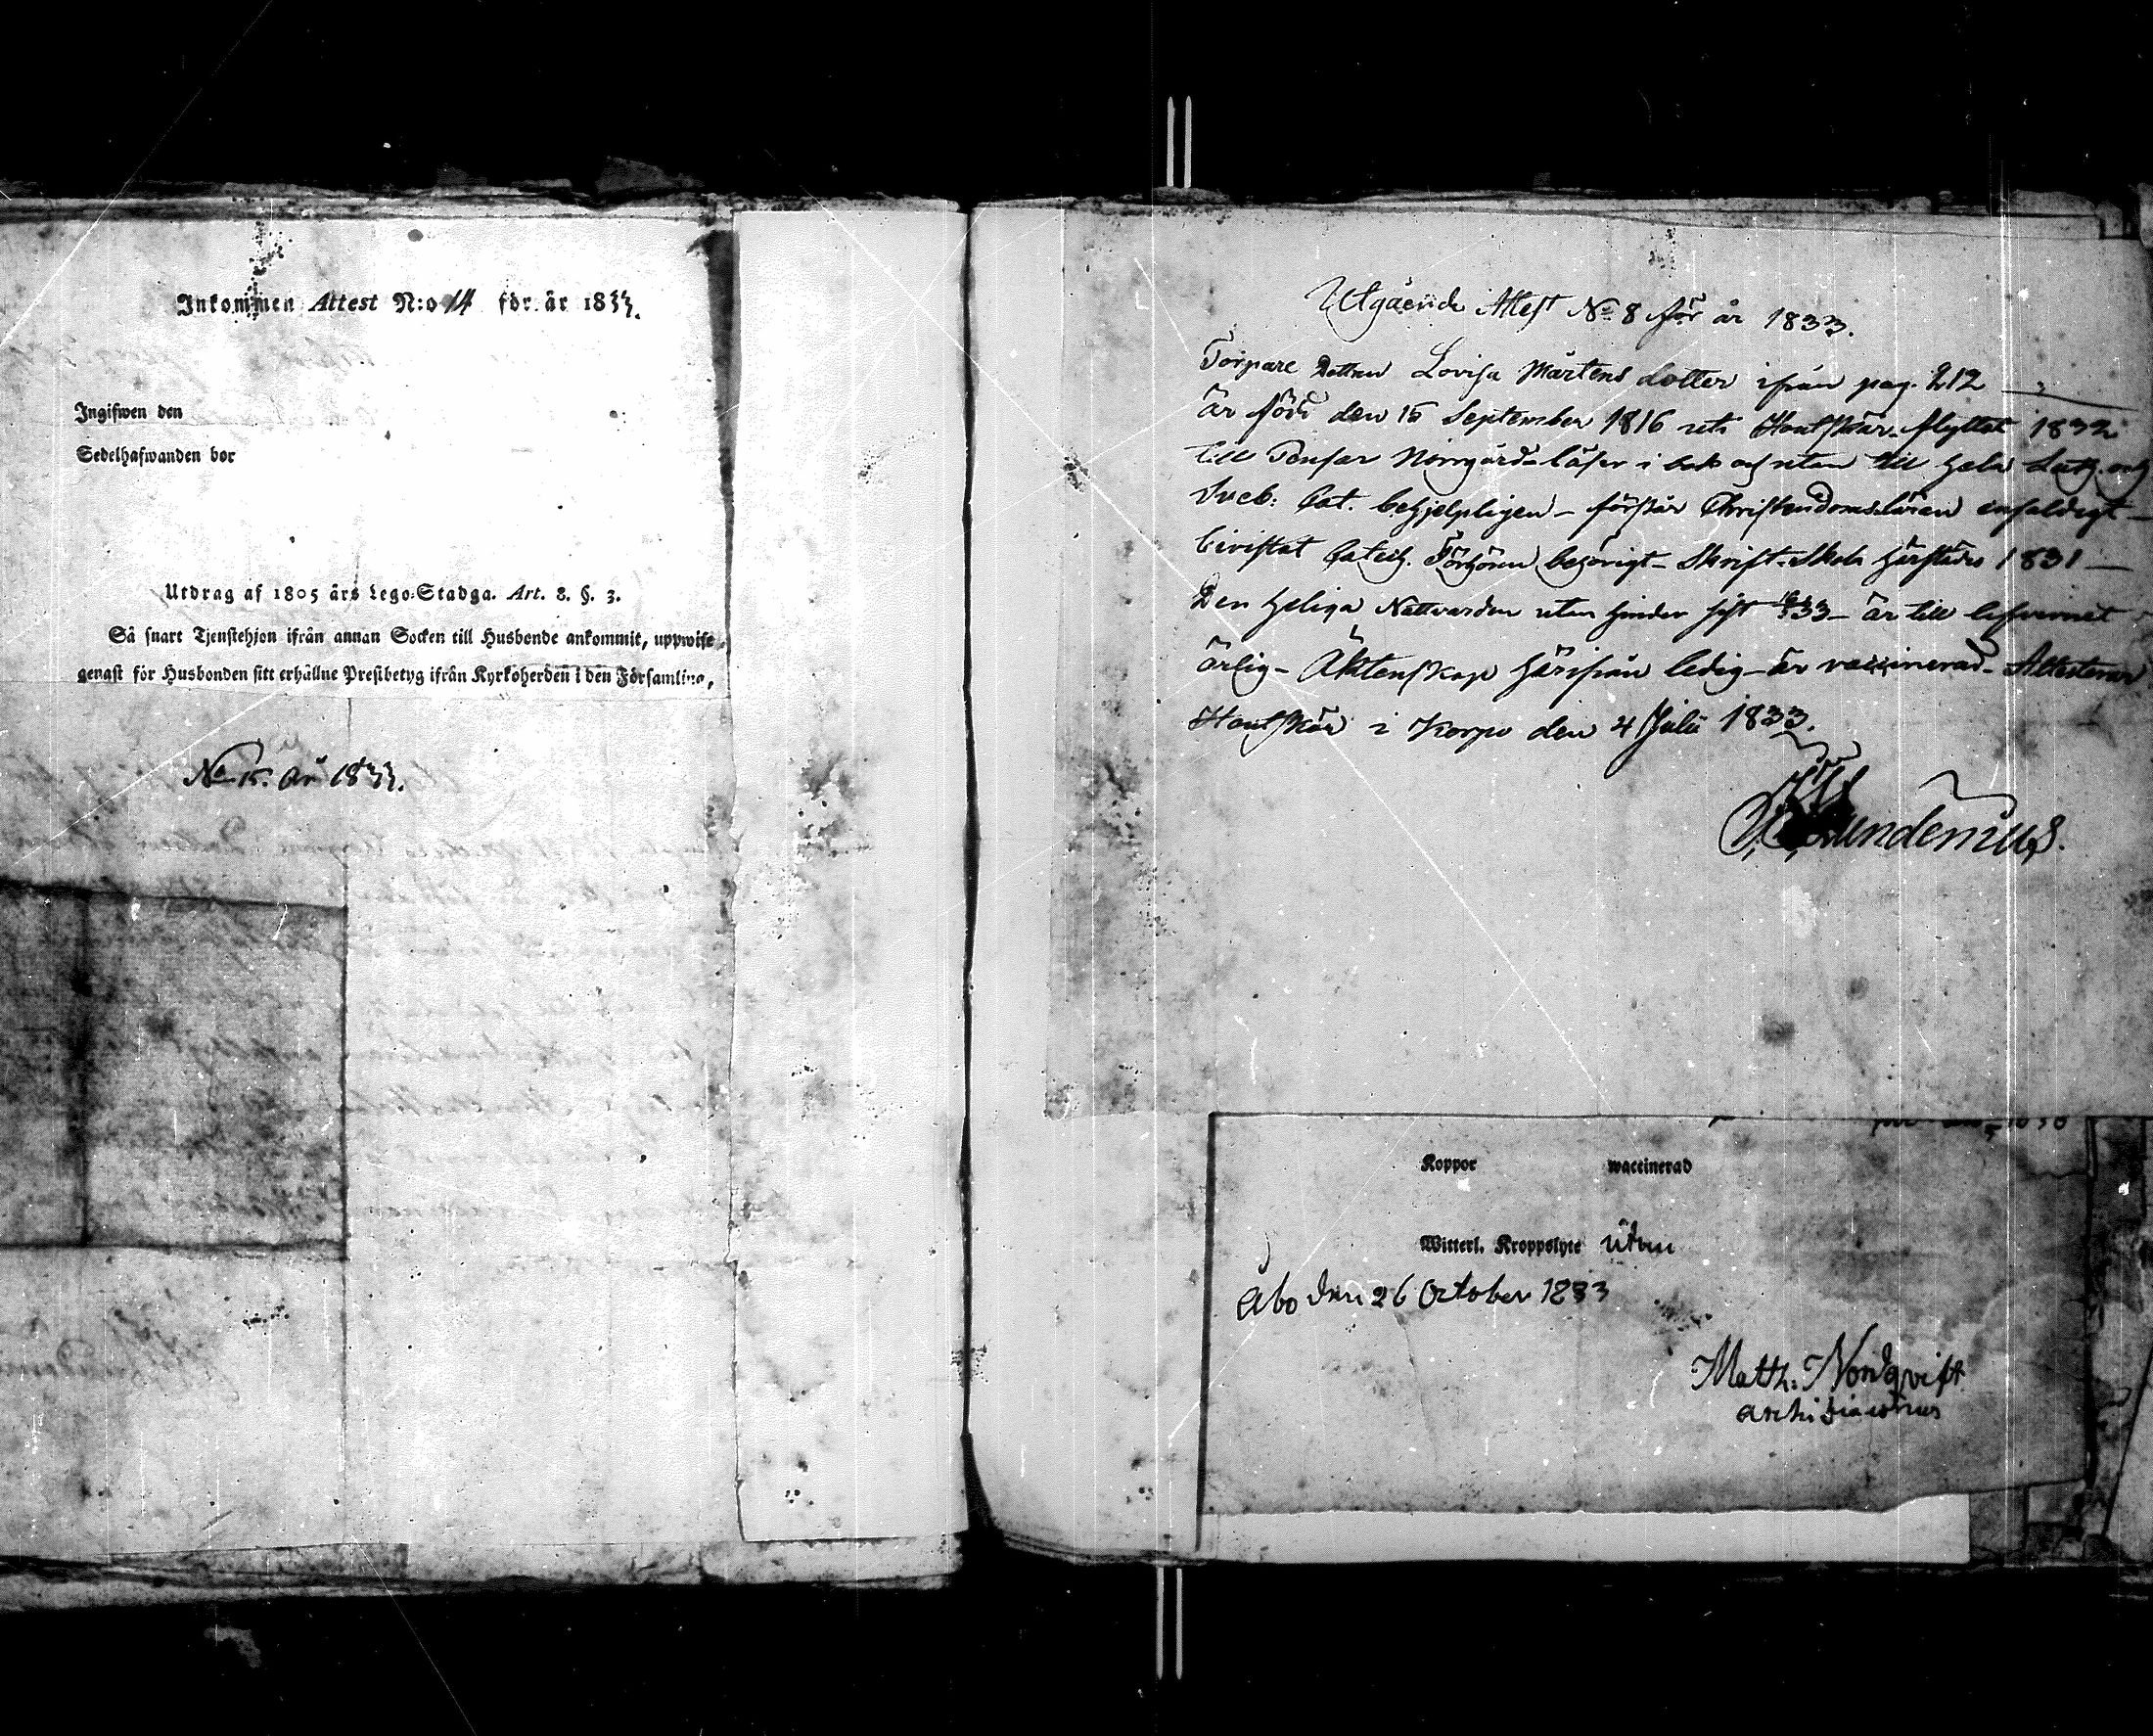 Inkommen Attest N:o 14 för år 1833.
Ingifwen den
Sedelhafwanden bor
Utdrag af 1805 års Lego-Stadga. Art. 8. §. 3.
Så snart Tjenstehjon ifrån annan Socken till Husbonde ankommit, uppwise
genast för Husbonden sitt erhållne Prestbetyg ifrån Kyrkoherden i den Församling,
No 15. År 1833.
Utgående Attest No 8 för år 1833.
Torpare Dottren Lovisa Mårtens dotter ifrån pag. 212
är född den 15 September 1816 uti Houtskär. flyttat 1832
till Norrgård läser i bok och utan till hela Luth. och
Sveb: Cat. behjelpligen – förstår Christendomsläran enfaldigt –
bevistat Catech. Förhören behörigt – Skrift-Skola härstädes 1831 –
Den heliga Nattvarden utan hinder sist 33 – är till lefvernet
ärlig – Äktenskap härifrån ledig – är vaccinerad – Attesterar
Houtskär i Korpo den 4 Julii 1833.
Koppor waccinerad
Witterl. Kroppslyte utan
Åbo den 26 October 1833
Matth: Nordqvist
archidiaconus